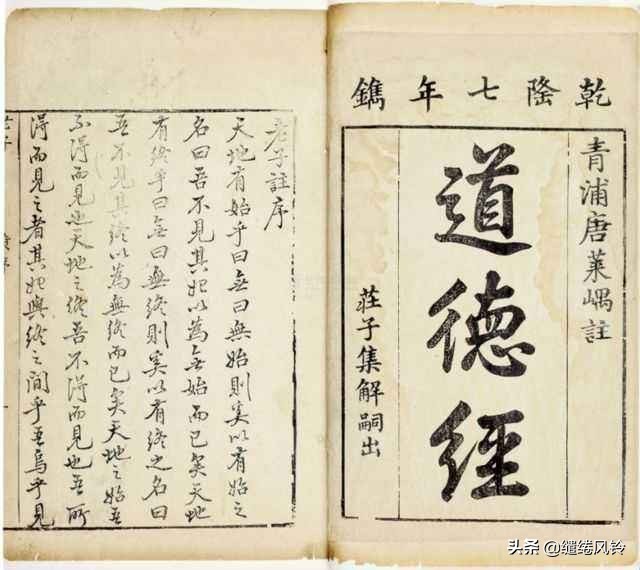 乾隆七年鐫
青浦唐萊嵎註
道德經
莊子集解嗣出
老子註序
天地有始乎曰無曰無始則奚以有始之
名曰吾不見其始以為無始而已矣天地
有終乎曰無曰無終則奚以有終之名曰
吾不見其終以為無終而已矣天地之始吾
不得而見也天地之終吾不得而見也吾所
得而見之者其始與終之間乎吾烏乎見
头条 @缱绻风铃